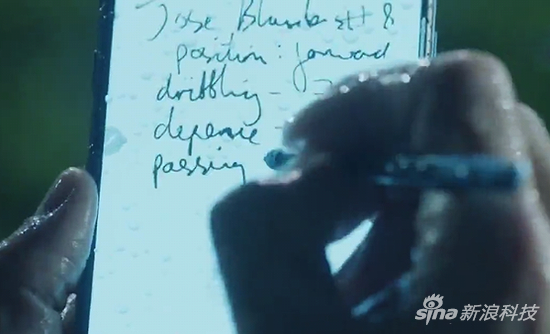 Jose Blunk #8
position: forward
dribbling - 7
defense -
passing
sina新浪科技